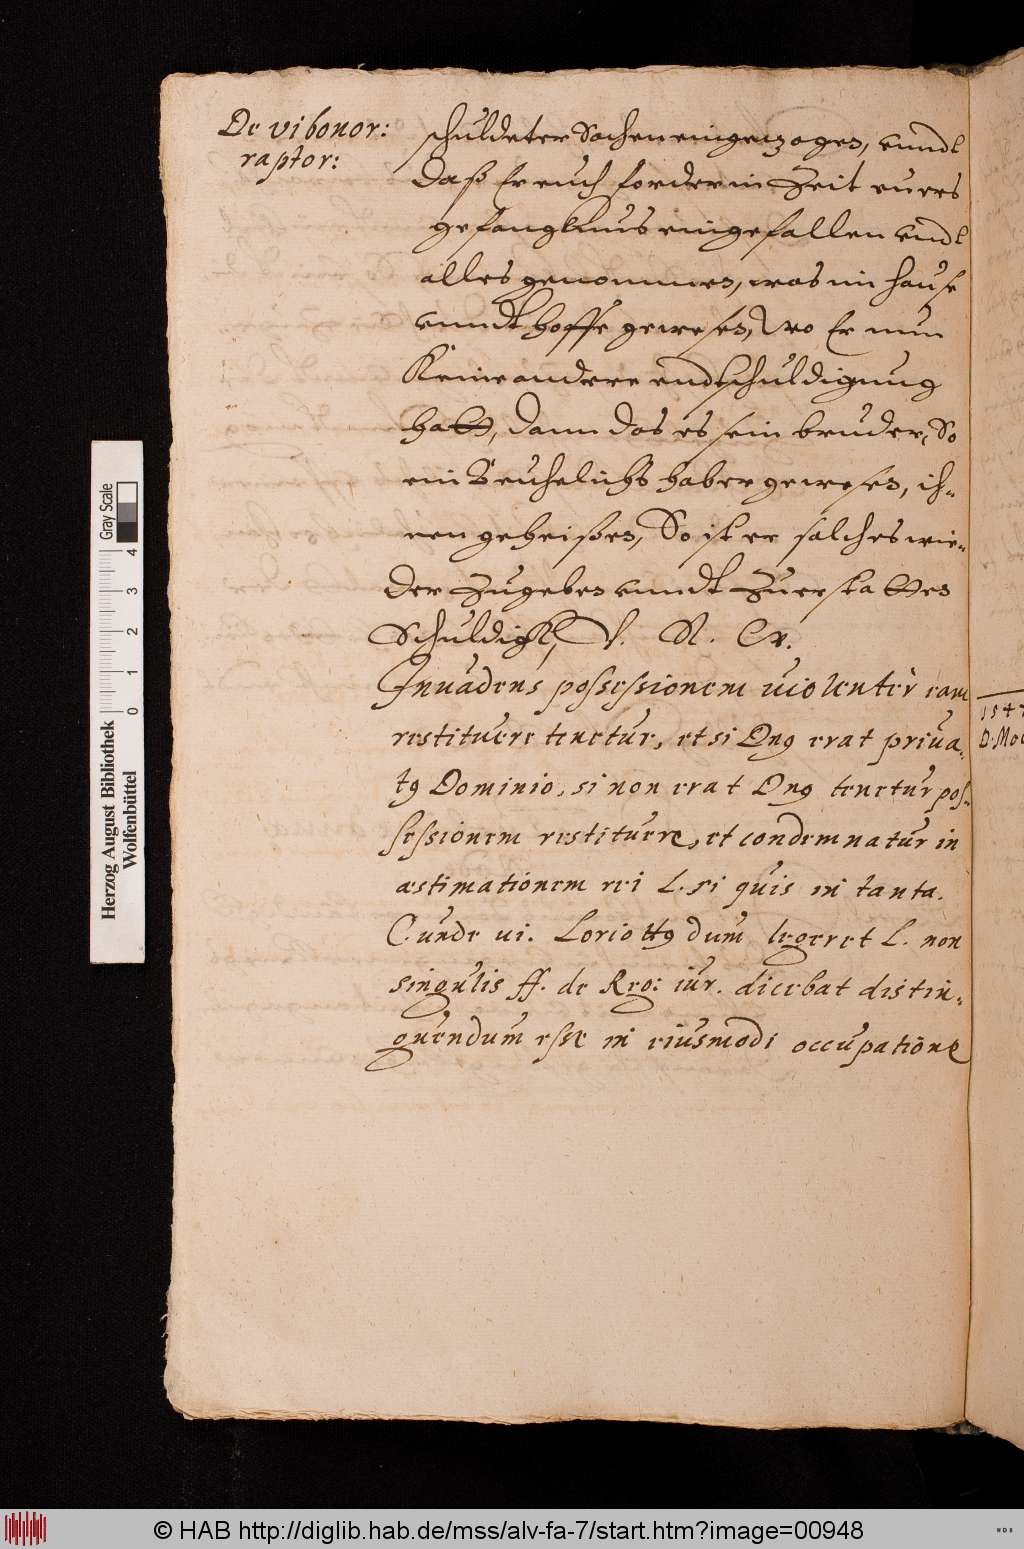 De vi bonor:
raptor:
schuldeter Sachen eingetzogen, vundt
Daß Er euch forder in Zeit euers
gefangknus eingefallen vndt
alles genommen, was im hause
vnndt hoffe gewesen, wo Er nun
Keine andere endtschuldigung
hatt, dann das es sein bruder, So
ein haber gewesen, ih-
nen geheißen, So ist er solches wie-
der Zugeben vnndt Zuerstatten
Schuldigk, V. R. W.
Inuadens possessionem uiolenter eam
restituere tenetur, et si Dn9 erat priua-
t9 Dominio, si non erat Dn9 tenetur pos-
sessionem restituere, et condemnatur in
æstimationem rei L. si quis in tanta.
C. unde ui. Loriott9 dum legeret L. non
singulis ff. de Reg: iur. dicebat distin-
guendum esse in eiusmodi occupatione
154
D. Mo
Herzog August Bibliothek
Wolfenbüttel
0 1 2 3 4
Gray Scale
© HAB http://diglib.hab.de/mss/alv-fa-7/start.htm?image=00948